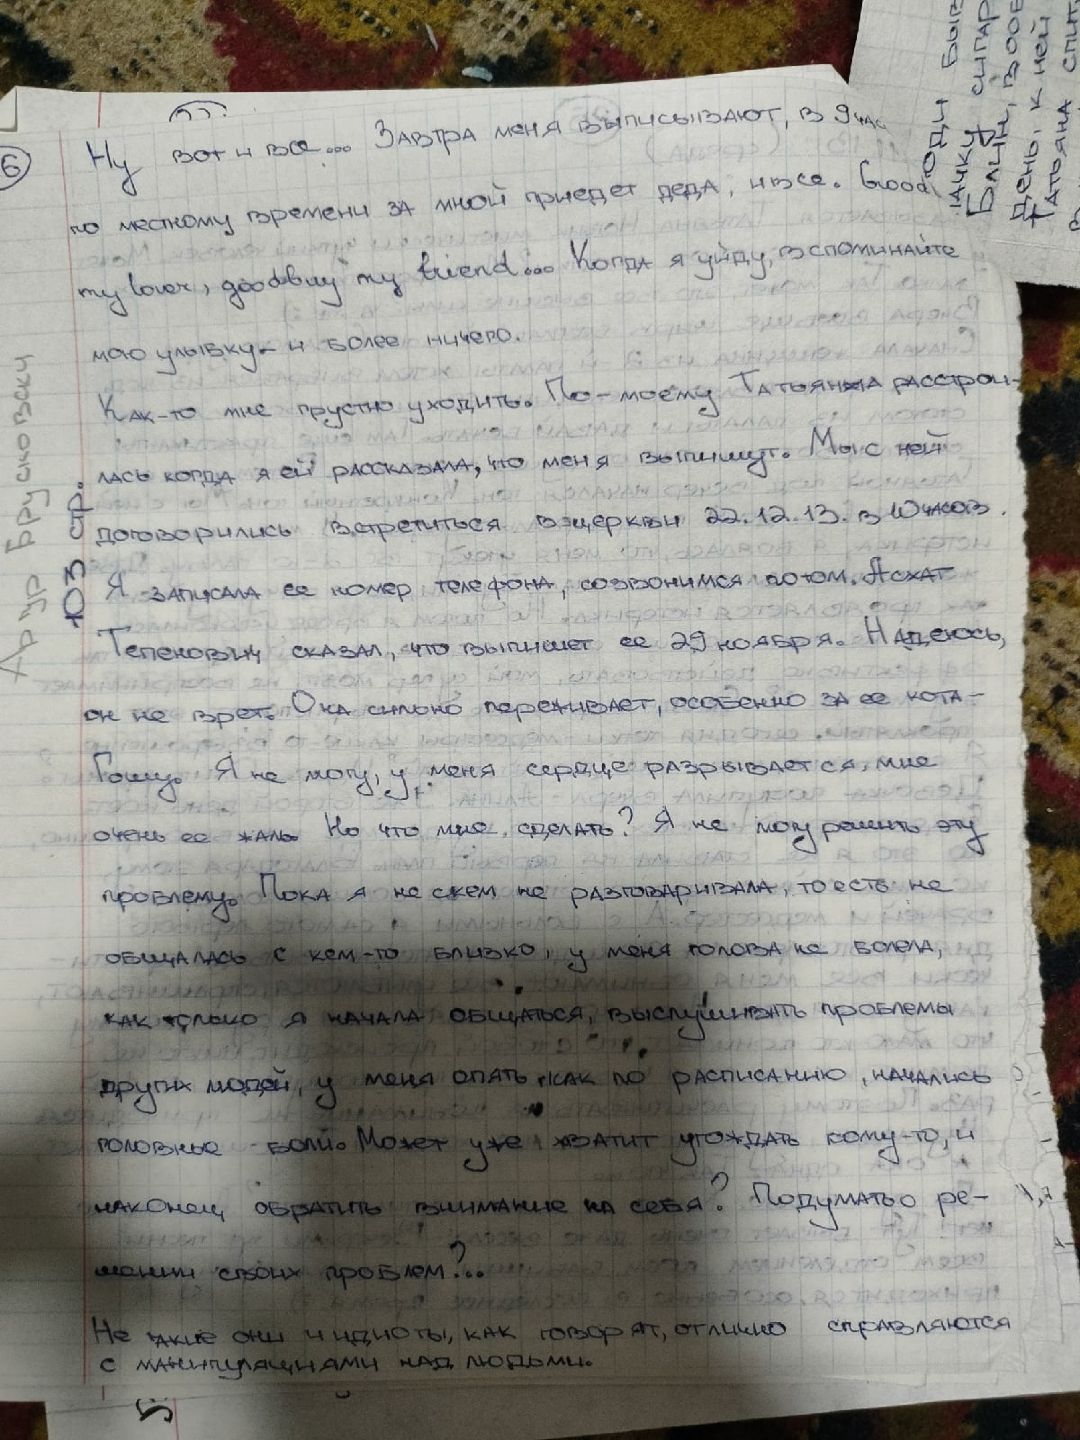 6
Ну вот и все... Завтра меня выписывают, в 9 час
по местному времени за мной приедет деда, и все. Good
my lover, goodbuy my friend... Когда я уйду, вспоминайте
мою улыбку - и более ничего.
Как-то мне грустно уходить. По-моему Татьяна расстрои-
лась когда я ей рассказала, что меня выпишут. Мы с ней
договорились встретиться в церкви 22.12.13. в 10 часов.
Я записала ее номер телефона, созвонимся потом. Асхат
Тепенович сказал, что выпишет ее 29 ноября. Надеюсь,
он не врет. Она сильно переживает, особенно за ее кота-
Гошу. Я не могу, у меня сердце разрывается, мне
очень ее жаль. Но что мне сделать? Я не могу решить эту
проблему. Пока я не с кем не разговаривала, то есть не
общалась с кем-то близко, у меня голова не болела,
как только я начала общаться, выслушивать проблемы
других людей, у меня опять, как по расписанию, начались
головные боли. Может уже хватит угождать кому-то, и
наконец обратить внимание на себя? Подумать о ре-
шении своих проблем?...
Не такие они и идиоты, как говорят, отлично справляются
с манипуляциями над людьми.
Артур Брусковски
103 стр.
оди быв
пачку сигар
Блин, вооб
День, к ней
Татьяна спит,